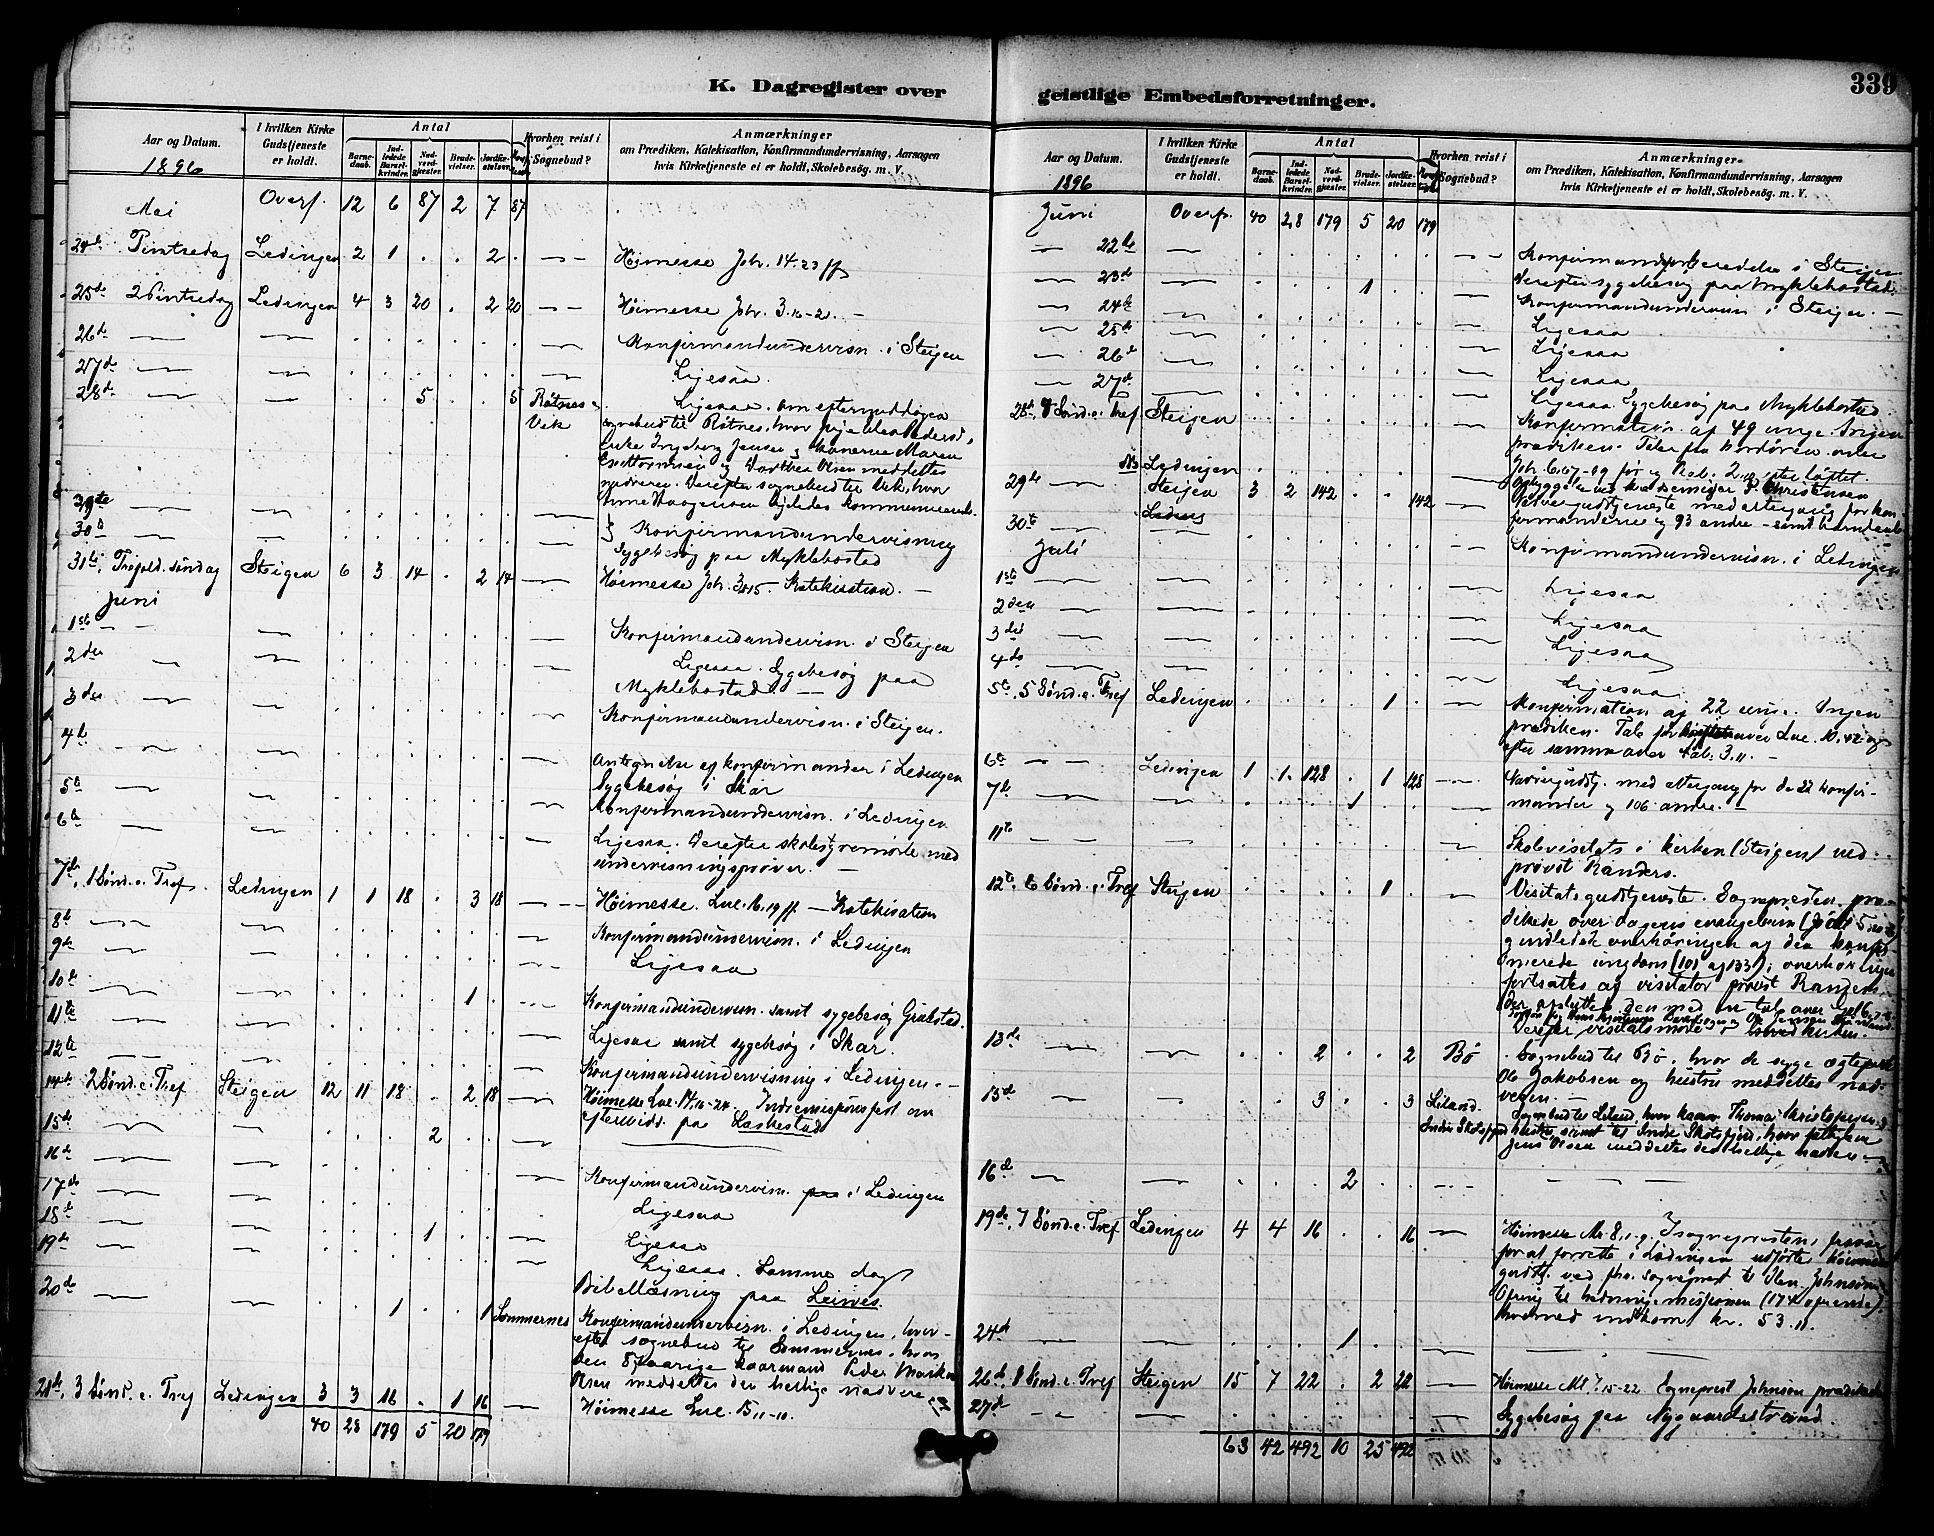 K. Dagregister over
geistlige Embedsforretninger.
339
Aar og Datum.
1896
I hvilken Kirke
Gudstjeneste
er holdt.
Antal
Barne-
daab.
Ind-
ledede
Barsel-
kvinder.
Nad-
verd-
gjester.
Brude-
vielser.
Jordfæ-
stelser.
Hvorhen reist i
Sognebud?
Anmærkninger
om Prædiken, Katekisation, Konfirmandundervisning, Aarsagen
hvis Kirketjeneste ei er holdt, Skolebesøg. m. V.
Mai Overf. 12 6 87 2 7 87
24de Pintsedag Ledingen 2 1 . . 2 . Høimesse Joh. 14.23 ff
25de 2 Pintsedag Ledingen 4 3 20 . 2 20 Høimesse Joh. 3.16-21
26de Konfirmandundervisn. i Steigen
27de Ligesaa.
28de 5 5 Røtnes Vek Ligesaa. Om eftermiddagen
sognebud til Røtnes, hvor
Enke Ingeborg Jensen
og Dorthea Olsen meddeltes
nadveren. Derefter sognebud til Vek, hvor
29de
30te } Konfirmandundervisning
Sygebesøg paa Myklebostad
31te, Trefold. søndag Steigen 6 3 14 . 2 14 Høimesse Joh. 3.1-15. Katekisation.
Juni
1ste Konfirmandundervisn. i Steigen
2den Ligesaa. Sygebesøg paa
Myklebostad
3die Konfirmandundervisn. i Steigen.
4de Antegnelse af konfirmander i Ledingen
Sygebesøg i Skar
5te Konfirmandundervisn. i Ledingen
6te Ligesaa. Derefter skolestyremøde med
undervisningsprøver.
7de, 1 Sønd. e. Tref. Ledingen 1 1 18 . 3 18 Høimesse. Luc. 16.19 ff. - Katekisation
8de Konfirmandundervisn. i Ledingen
9de Ligesaa
10de 1 Konfirmandundervisn. samt sygebesøg Grøtstad.
11te Ligesaa samt sygebesøg i Skar.
12te Konfirmandundervisning i Ledingen.
14de 2 Sønd. e. Tref Steigen 12 11 18 . 2 18 Høimesse Luc. 14.16-24. Indremissionsfest om
eftermidd. paa Laskestad
15de 2
16de Konfirmandundervisn. paa i Ledingen
17de Ligesaa
18de 1 Ligesaa
19de Ligesaa. Samme dag
Bibellæsning paa Leines.
20de 1 1 Sommernes Konfirmandundervisn. i Ledingen, hver-
efter sognebud til Sommernes, hvor
den 87 aarige kaarmand Peder Markus
Olsen meddeltes den hellige nadvere
21de, 3 Sønd. e. Tref Ledingen 3 3 16 . 1 16 Høimesse Luc. 15.11-
40 28 179 5 20 179
Aar og Datum.
1896
I hvilken Kirke
Gudstjeneste
er holdt.
Antal
Barne-
daab.
Ind-
ledede
Barsel-
kvinder.
Nad-
verd-
gjester.
Brude-
vielser.
Jordfæ-
stelser.
Hvorhen reist i
Sognebud?
Anmærkninger
om Prædiken, Katekisation, Konfirmandundervisning, Aarsagen
hvis Kirketjeneste ei er holdt, Skolebesøg. m. V.
Juni Overf. 40 28 179 5 20 179
22de Konfirmandforberedelse i Steigen
Derefter sygebesøg paa Myklebostad
23de 1 Konfirmandundervisn i Steigen.
24de Ligesaa
25de Ligesaa
26de Ligesaa
27de Ligesaa. Sygebesøg paa Myklebostad
28de, 4 Sønd. e. Tref Steigen Konfirmation af 49 unge. Ingen
prædiken. Tale fra kordøren over
Joh 6.67-69 før og efter løftet.
Ledingen
29de Steigen 3 2 142 . . 142 Nadvergudstjeneste med altergang for kon-
firmanderne og 93 andre - samt
30te Konfirmandundervisn. i Ledingen
Juli
1ste Ligesaa
2den Ligesaa
3die Ligesaa
4de Ligesaa
5te, 5 Sønd. e. Tref Ledingen 1 Konfirmation af 22 unge. Ingen
prædiken. Tale før løftet over Luc. 10.42 og
efter samme over Aab. 3.11. -
6te Ledingen 1 1 128 . 1 128 Nadvergudstj. med altergang for de 22 konfir-
7de 1 mander og 106 andre. -
11te Skolevisitats i kirken (Steigen) ved
provst Randers.
12te, 6 Sønd. e. Tref Steigen 1 Visitatsgudstjeneste. Sognepresten præ-
dikede over dagens evangelium (Matth 5
og indledede overhøringen af den konfir-
merede ungdom (101 af 133); overhøringen
fortsattes af visitator provst Randers
der afsluttede den med en tale over
Derefter visitatsmøde
13de 2 2 Bø Sognebud til Bø, hvor de syge ægtepar
Ole Jakobsen og hustru meddeltes nad-
veren. -
15de 3 3 Leiland. Indre Skotsfjord Sognebud til Leiland, hvor
hustru samt til Indre Skotsfjord, hvor
Jens Olsen meddeltes den hellige nadvere
16de 2
19de, 7 Sønd. e. Tref Ledingen 4 4 16 . . 16 Høimesse Mr. 8.1-9. Isogneprestens
for at forrette i Lødingen udførtes høimesse
gudstj. ved sogneprest til Johnson
Ofring til hedningemissionen (174 ofrende).
hvorved indkom kr. 53.11.
24de 1
26de, 8 Sønd. e. Tref Steigen 15 7 22 . 2 22 Høimesse Mt 7.15-22 Sogneprest Johnson prædikede
27de Sygebesøg paa Nygaardsstrand.
63 42 492 10 25 492